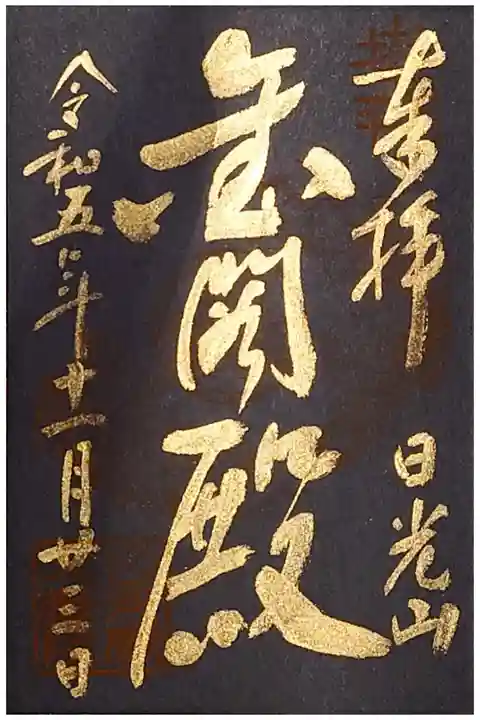 奉拝 日光山
金閣殿
令和五年十一月廿三日